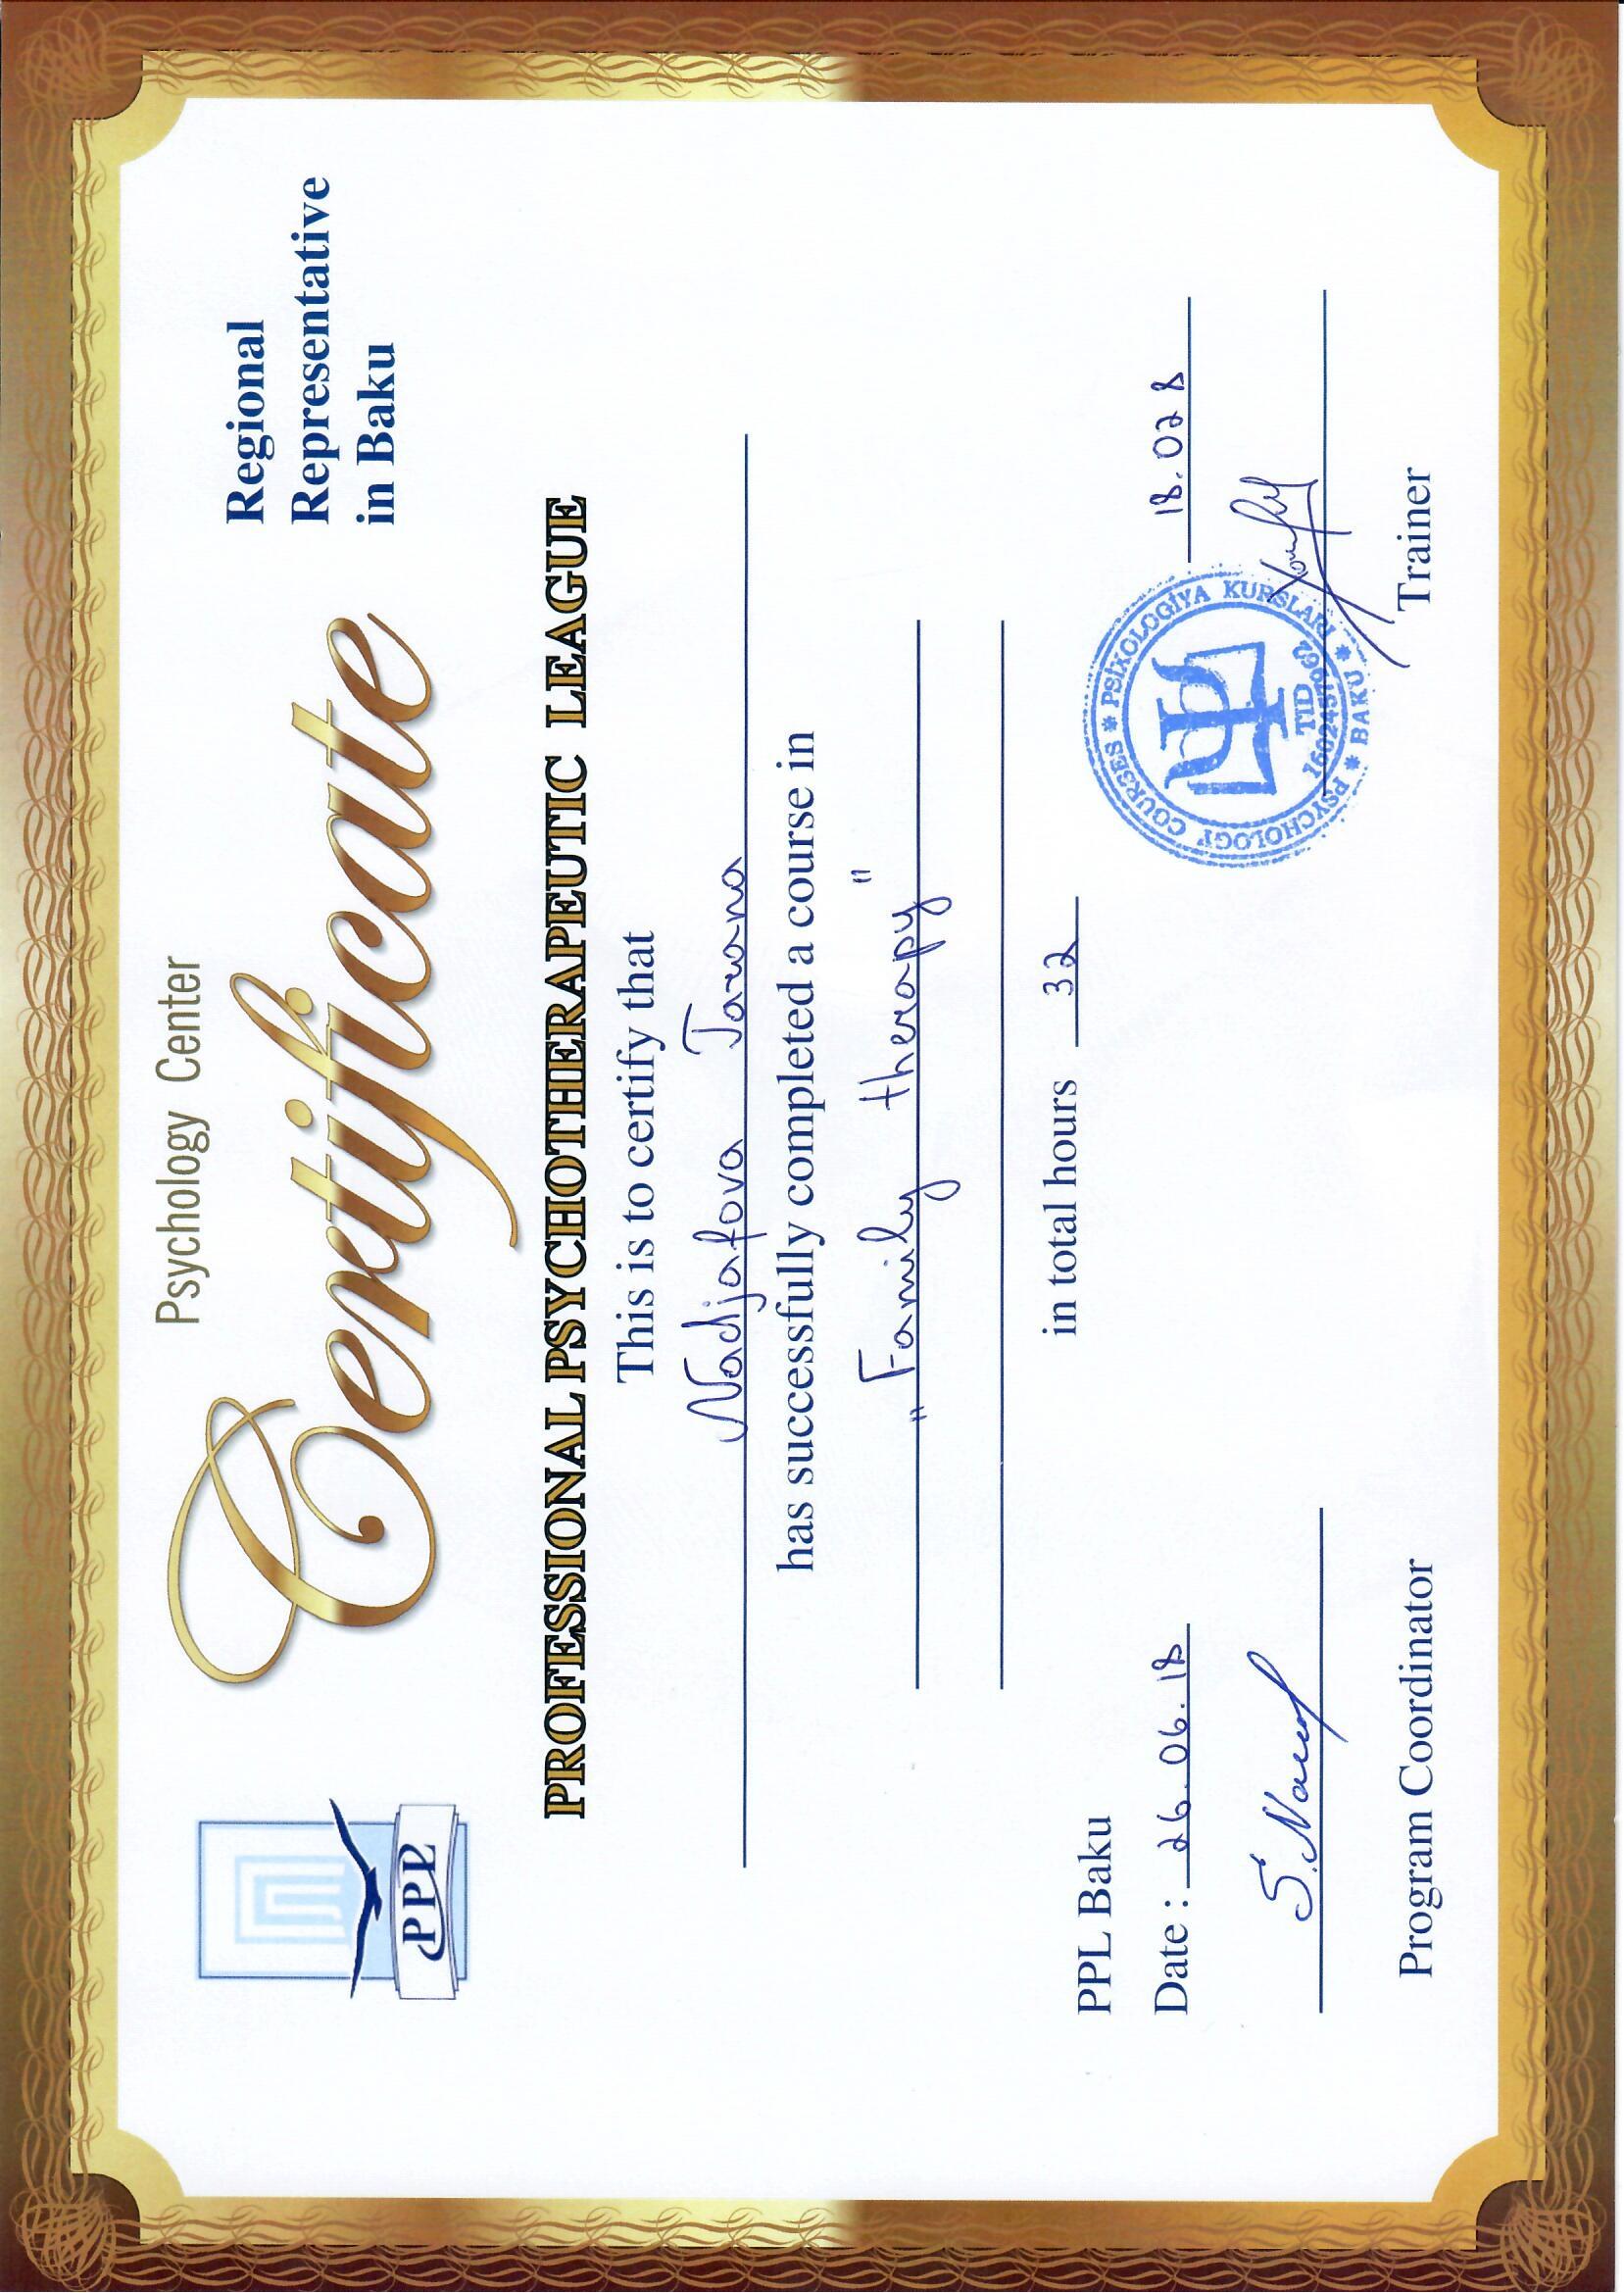 Psychology Center
Certificate
Regional
Representative
in Baku
PPL
PROFESSIONAL PSYCHOTHERAPEUTIC LEAGUE
This is to certify that
Nadjafova Tarana
has successfully completed a course in
„Family therapy"
in total hours 32
PPL Baku
Date : 26.06.18
18.028
PSYCHOLOGY COURSES * PSİXOLOGİYA KURSLARI * BAKU *
TID
1602457962
S.
Program Coordinator
Trainer